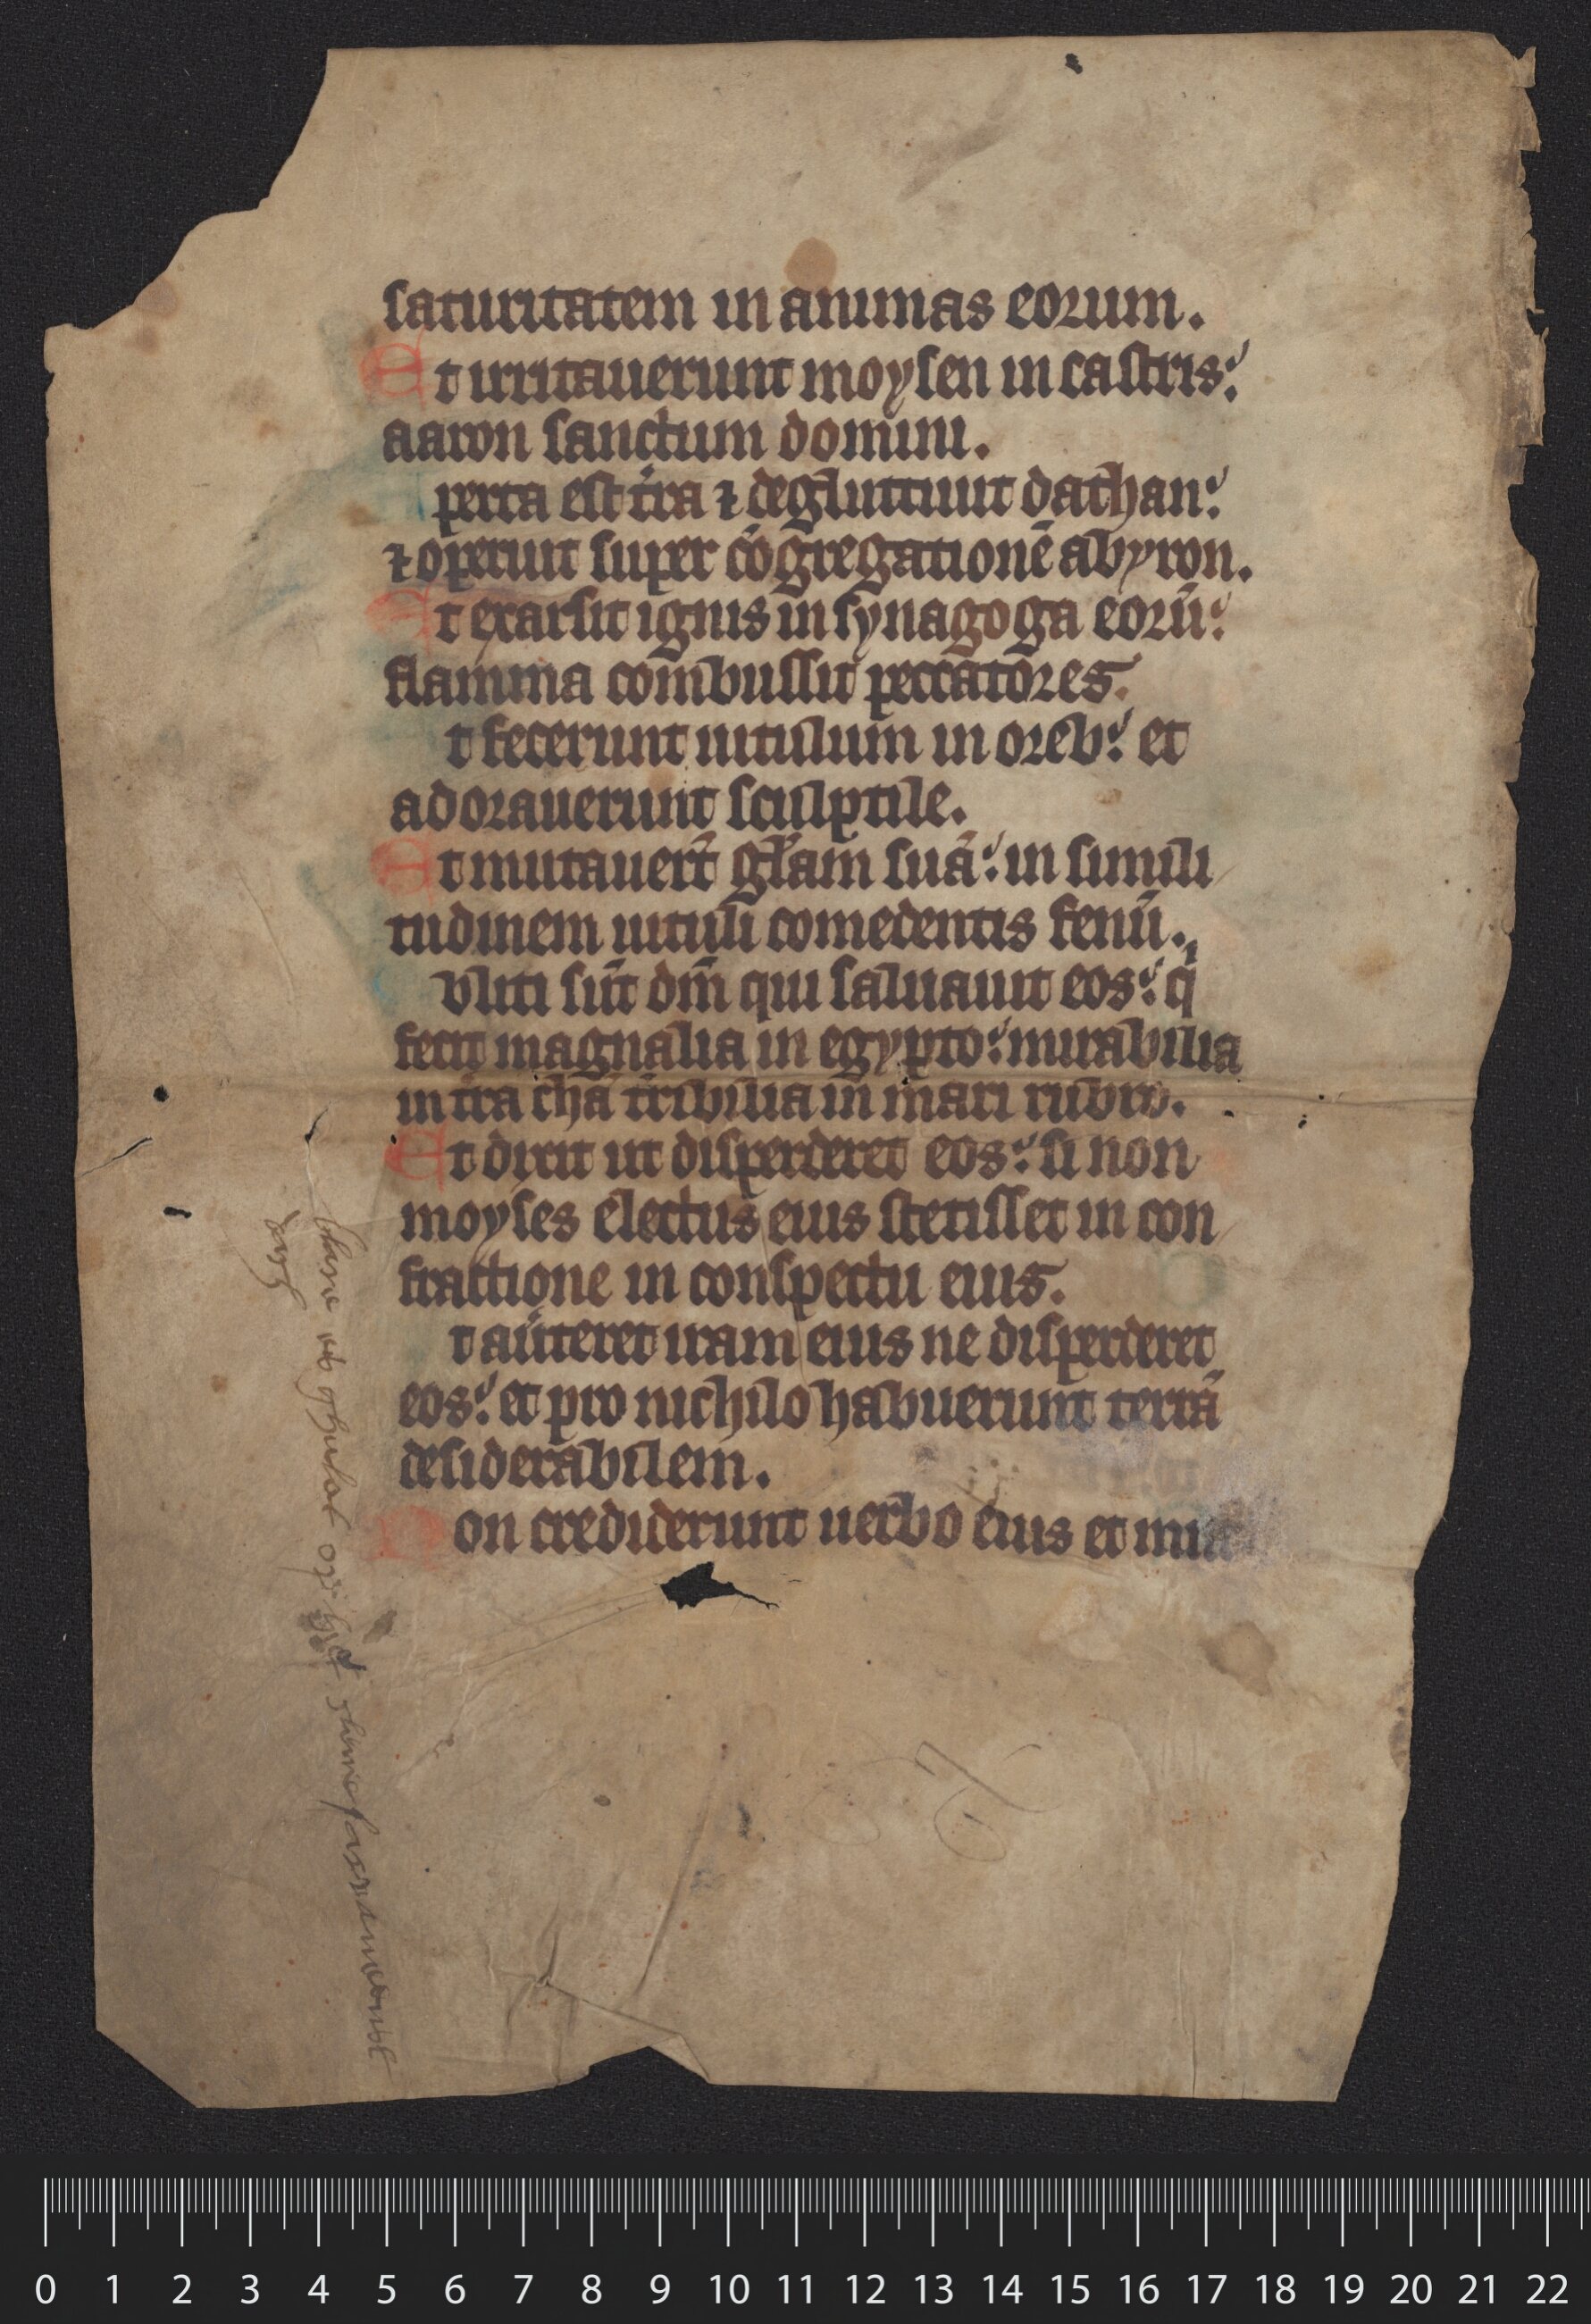 saturitatem in animas eorum.
Et irritauerunt moysen in castris:
aaron sanctum domini.
perta est tr̄a ⁊ degluttiuit dathan:
⁊ operuit super cōgregationē abyron.
Et exarsit ignis in synagoga eorū:
flamma combussit peccatores.
t fecerunt uitulum in oreb: et
adorauerunt sculptile.
Et mutauert̄ gl̄am suā: in simili
tudinem uituli comedentis fenū.
bliti sūt dm̄ qui saluauit eos: qͥ
fecit magnalia in egypto: mirabilia
in tr̄a chā tr̄ibilia in mari rubro.
Et dixit ut disperderet eos: si non
moyses electus eius stetisset in con
fractione in conspectu eius.
t aūteret iram eius ne disperderet
eos: et pro nichilo habuerunt terrā
desiderabilem.
on crediderunt uerbo eius et mur
0 1 2 3 4 5 6 7 8 9 10 11 12 13 14 15 16 17 18 19 20 21 22